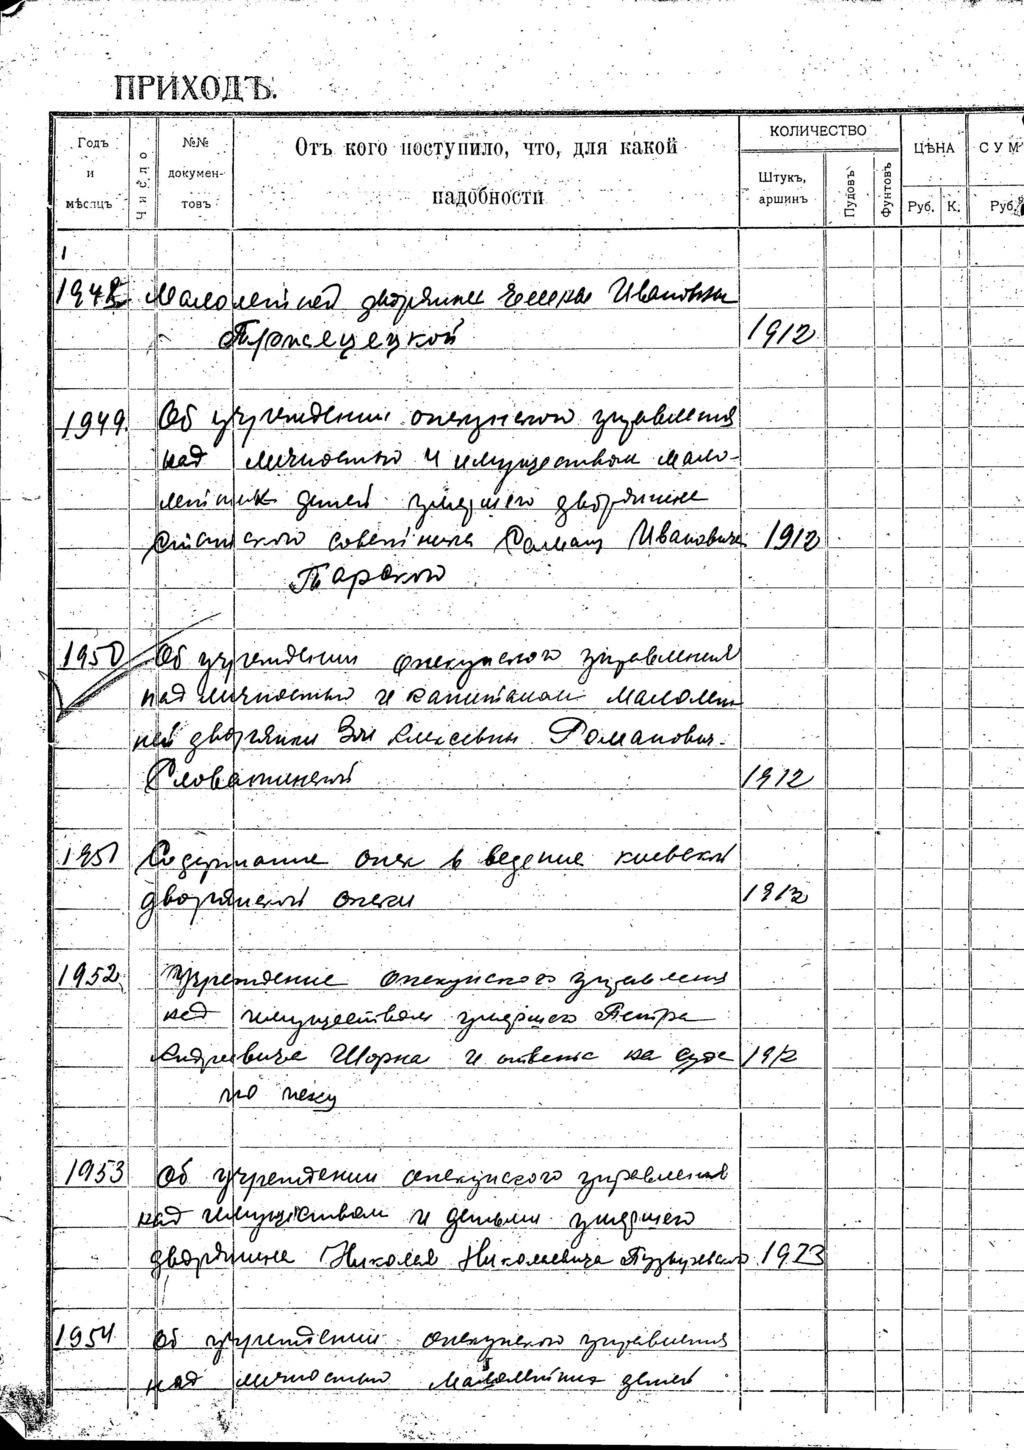 ПРИХОДЪ.
Годъ и мѣсяцъ
Число
№№ докумен- товъ
Отъ кого поступило, что, для какой надобности
КОЛИЧЕСТВО
Штукъ, аршинъ
Пудовъ
Фунтовъ
ЦѢНА
Руб. К.
СУМ
Руб.
1948 Малолетней дворянки Елены Ивановны
Пржецецкой 1912
1949. Об учреждении опекунского управления
над личностью и имуществом мало-
летних детей умершего дворянина
статского советника Ивановича 1912
Тарского
1950 Об учреждении опекунского управления
над личностью и капиталом малолет
ней дворянки Зои Алексевны Романович-
Словатинской 1912
1951 Содержание опек в ведение киевской
дворянской опеки 1912
1952 Учреждение опекунского управления
над имуществом умершего Петра
Андреевича Шорна и 1912
1953 Об учреждении опекунского управления
над имуществом и детьми умершего
дворянина Николая Николаевича 1923
1954 Об учреждении опекунского управления
над личностью малолетних детей